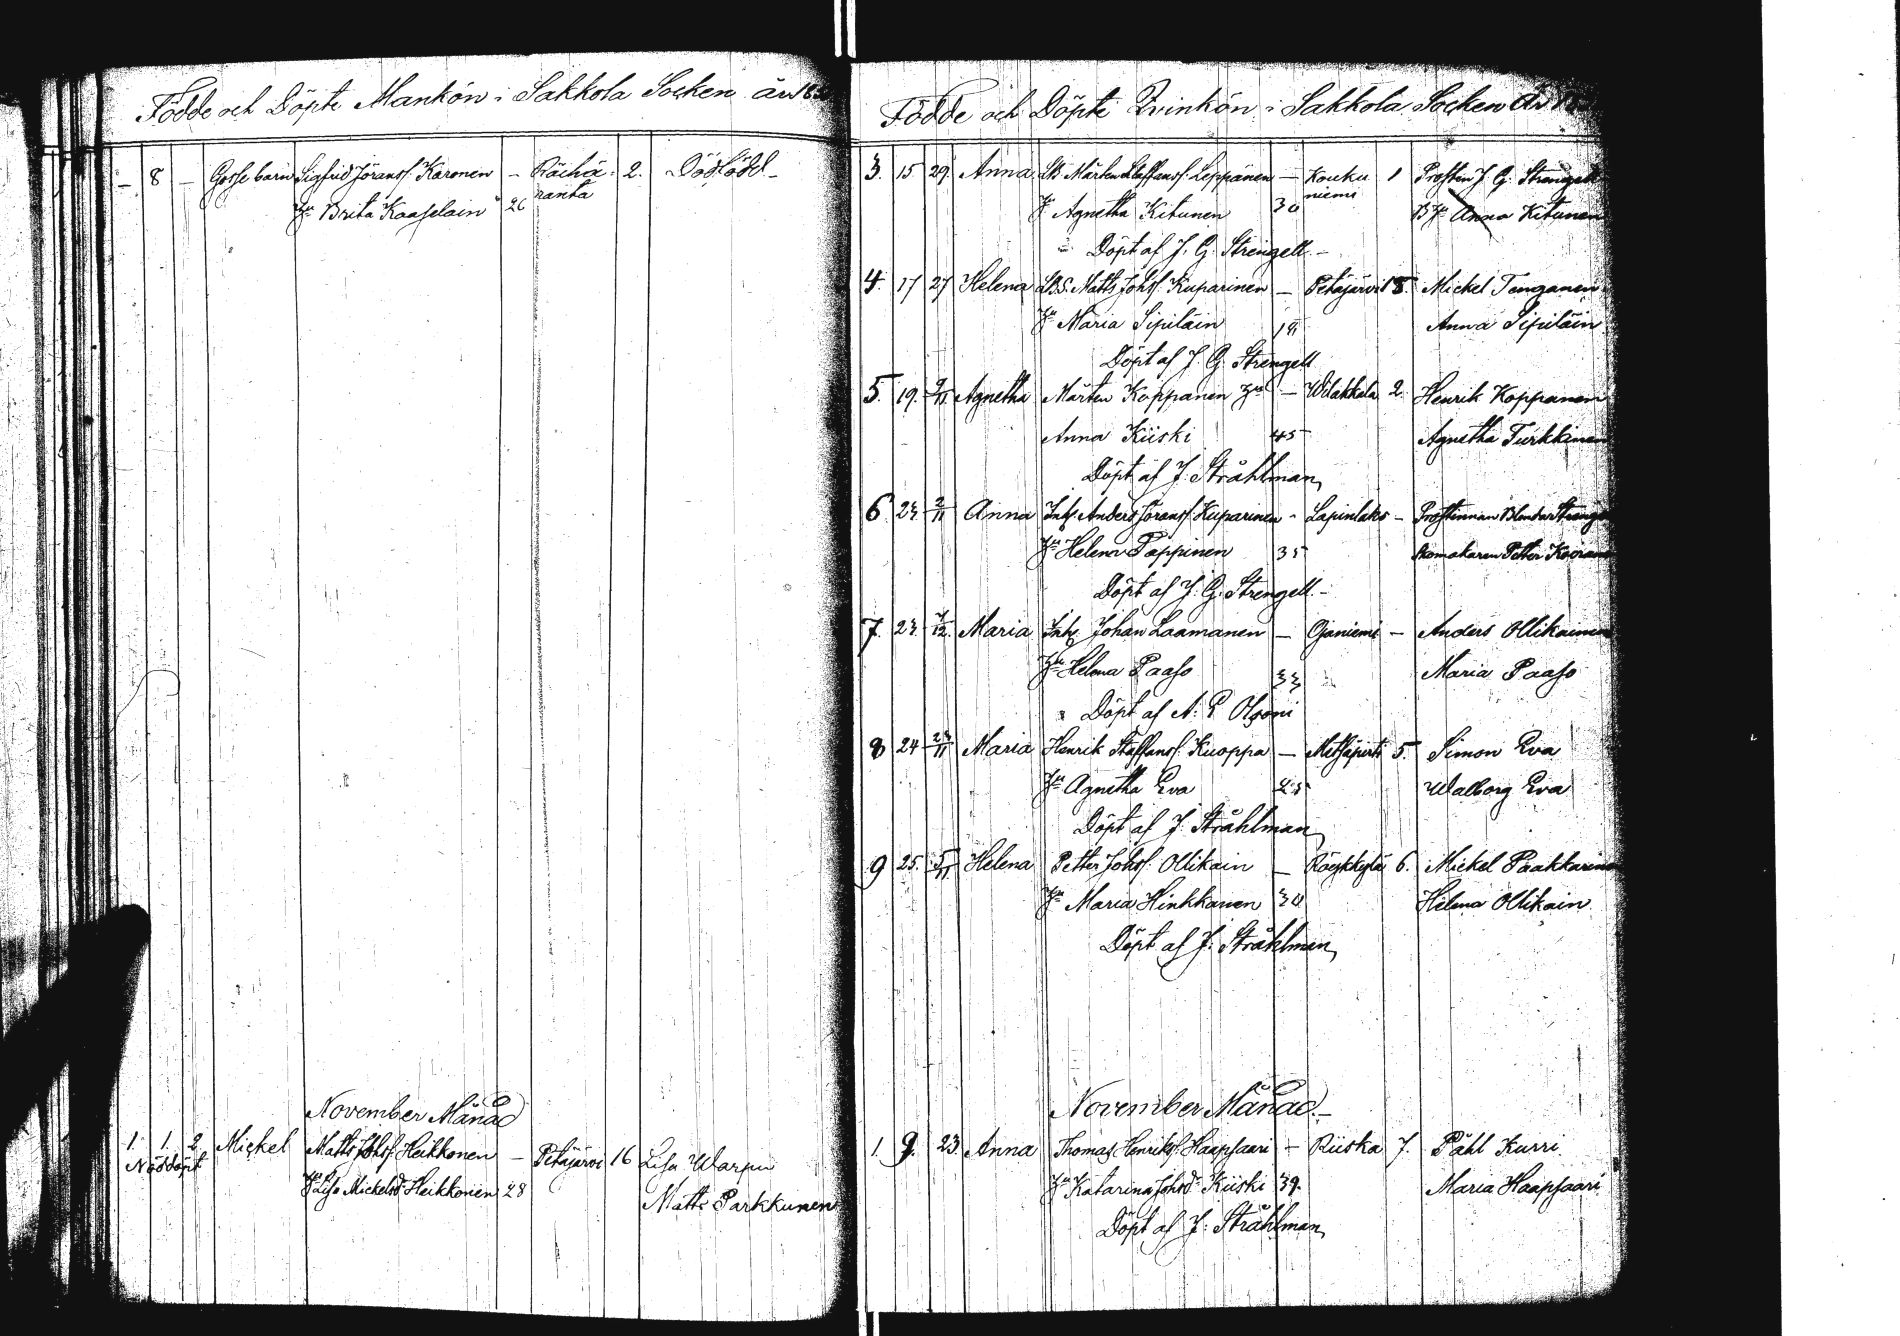 Födde och Döpte Mankön i Sakkola Socken år
– 8 – Gosse barn Sigfrid Göransf. Karonen – Räihä 2. Dödfödd –
Hu Brita Kaaselain 26 ranta
November Månad
1. 1. 2 Mickel Matts Johsf. Heikkonen – Petäjärvi 16 Lisa Warpu
Nöddöpt
Hu Lisa Mickelsd. Heikkonen 28 Matts Parkkunen
Födde och Döpte Qvinkön i Sakkola Socken År
3. 15 29. Anna Märten Staffansf. Leppänen – Kouku 1 Prosten J. G. Strengell
Agnetha Kitunen 30 niemi Anna Kitunen
Döpt af J. G. Strengell –
4. 17 27 Helena Matts Johsf. Kuparinen – Petäjärvi 18. Mickel Tenganen
Hu Maria Sipiläin 18 Anna Sipiläin
Döpt af J. G. Strengell
5. 19. Agnetha Märten Koppanen Hu – Wilakkala 2. Henrik Koppanen
Anna Kiiski 45 Agnetha Turkkinen
Döpt af J. Stråhlman
6. 23. 2/11 Anna Inh. Anders Göransf. Kuparinen – Lapinlaks – Prostinnan
Hu Helena Pappinen 35 Skomakaren Petter
Döpt af J. G. Strengell –
7. 23. Maria Inh. Johan Laamanen – Ojaniemi – Anders Ollikainen
Hu Helena Paaso 33 Maria Paaso
Döpt af A. E. Olsoni
8 24 Maria Henrik Staffansf. Kuoppa – Metsäpirti 5. Simon Eva
Hu Agnetha Eva 25 Walborg Eva
Döpt af J. Stråhlman
9 25. 5/11 Helena Petter Johsf. Ollikain – Röykkylä 6. Mickel Paakkarinen
Hu Maria Hinkkanen 30 Helena Ollikain
Döpt af J. Stråhlman
November Månad –
1. 9. 23. Anna Thomas Henriksf. Haapsaari – Riiska 7. Påhl Kurri
Hu Katarina Johsd. Kiiski 39. Maria Haapsaari
Döpt af J. Stråhlman